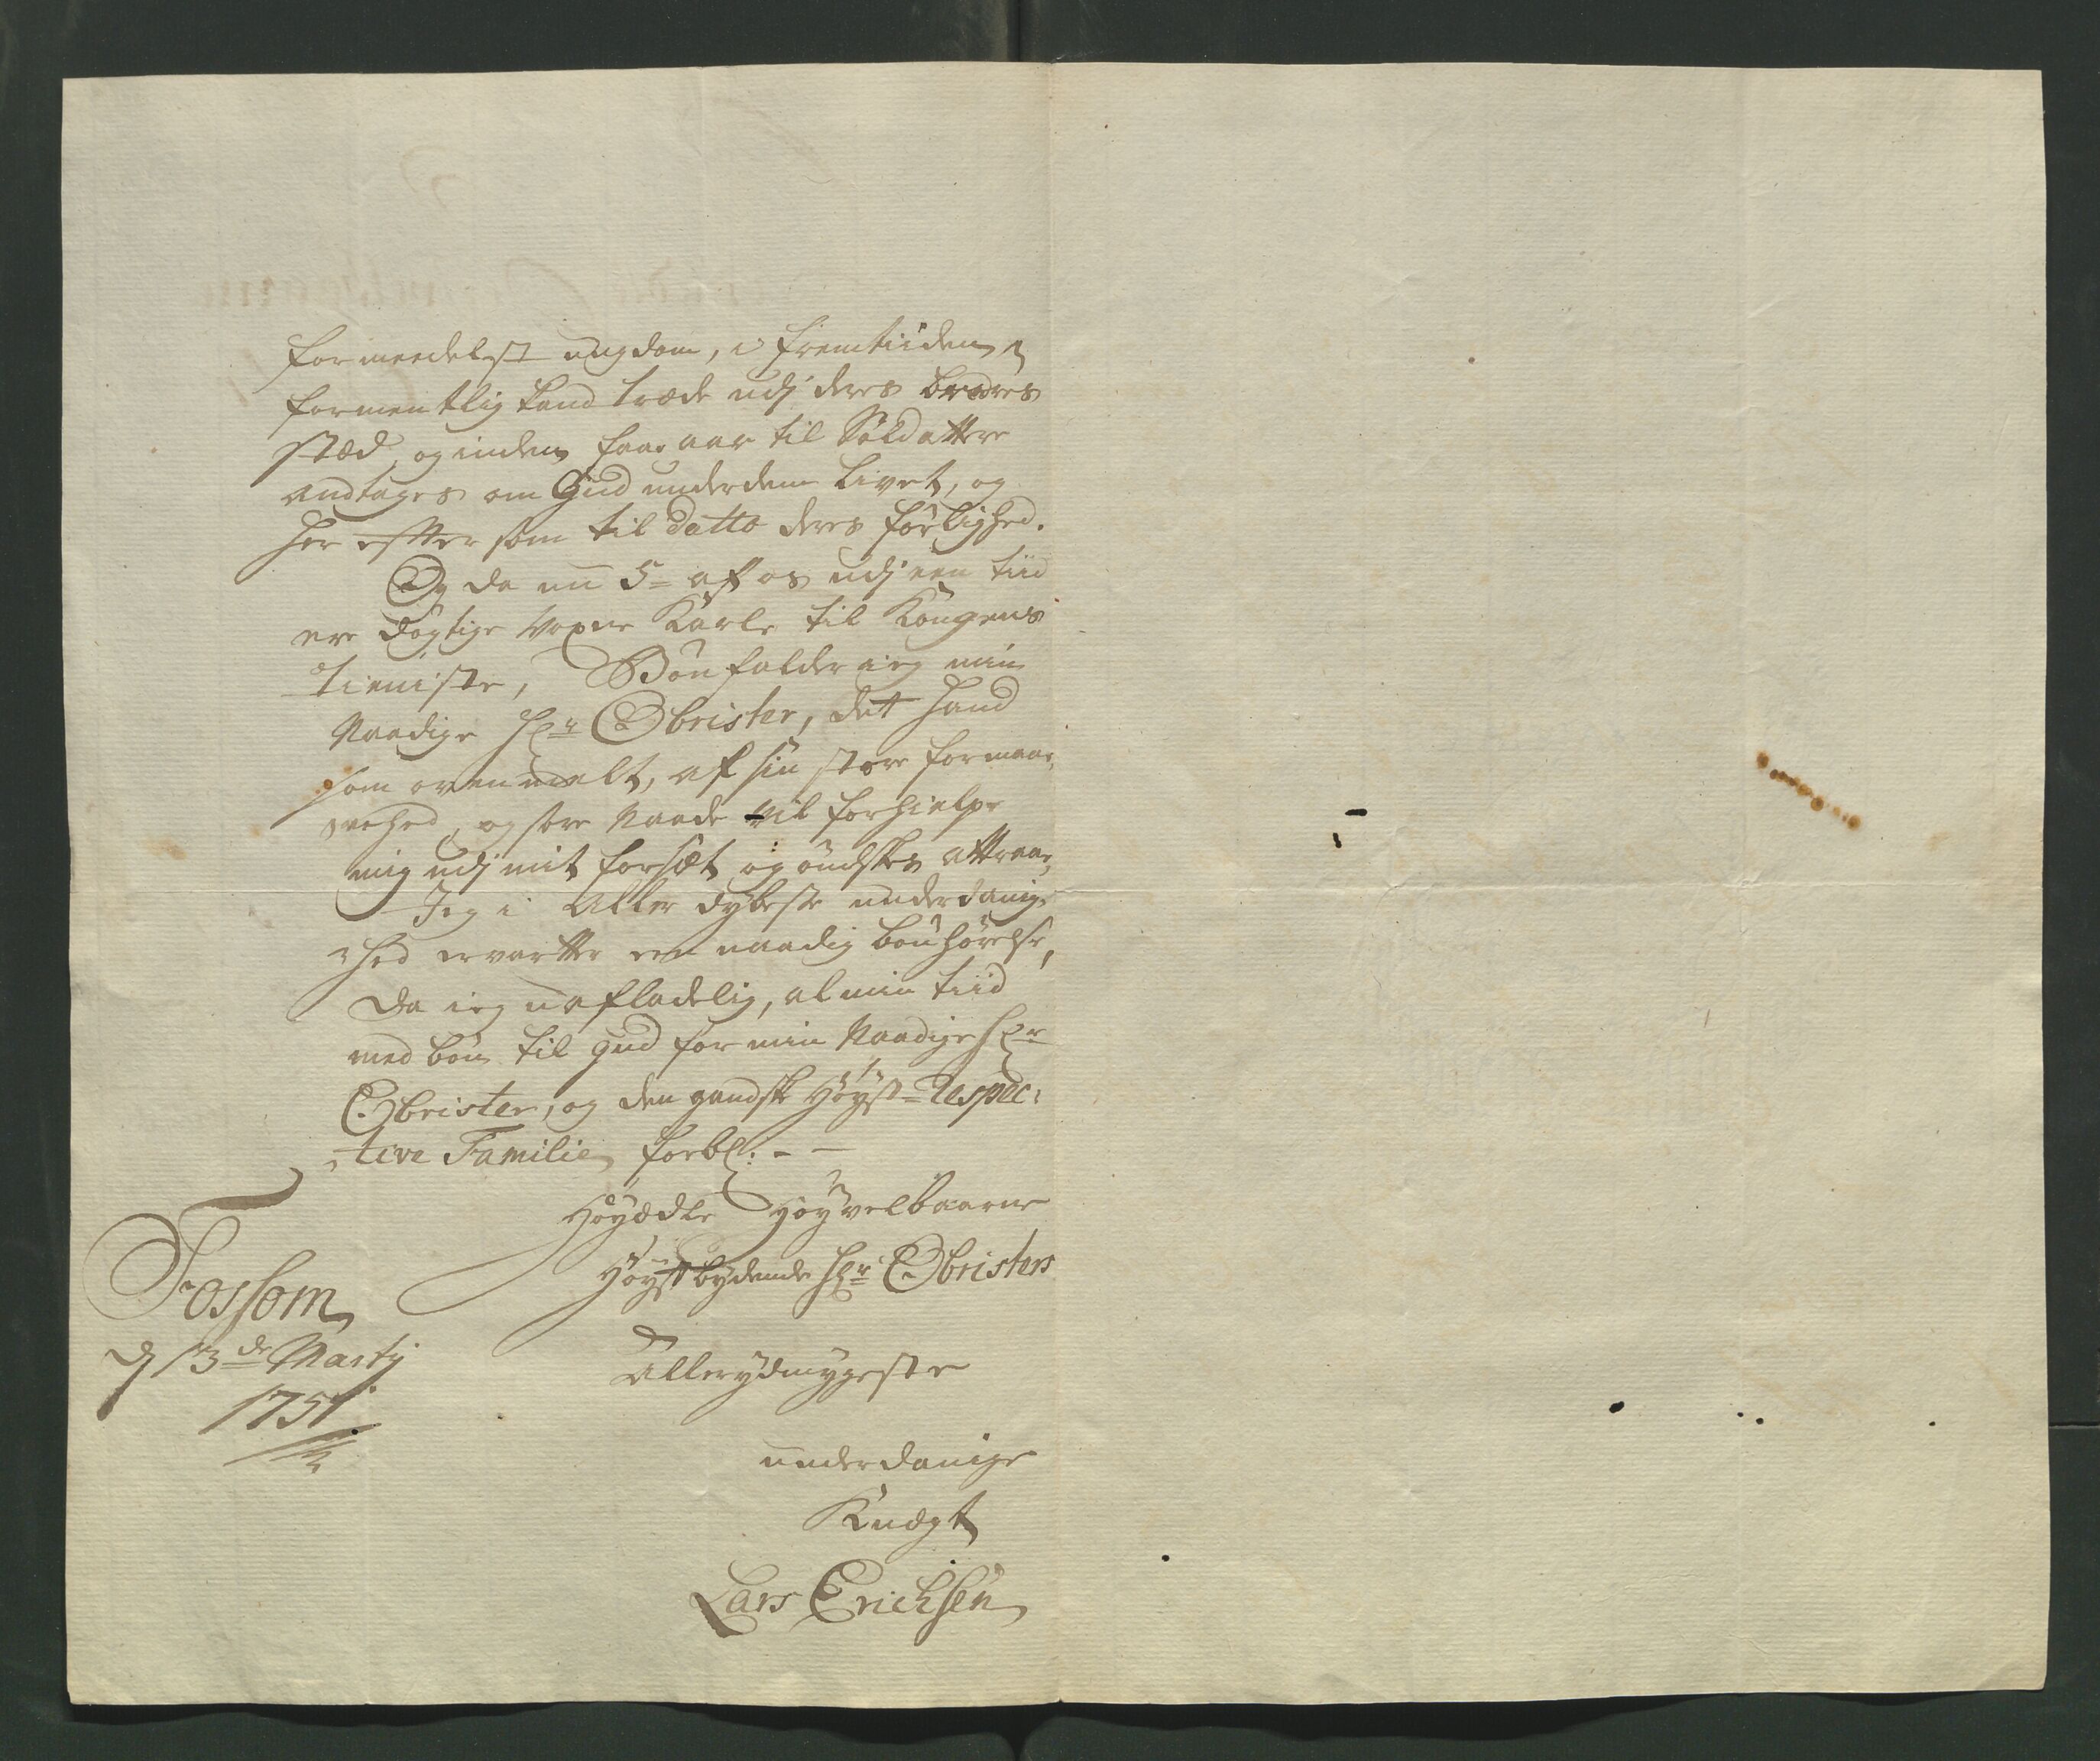 formeedelst ungdom, i fremtiiden
formentlig kand træde udj deres brødres
stæd, og inden faae aar til Soldattere
andtages om Gud under dem livet, og
her effter som til datto deres førlighed.
Og da nu 5 af os udj een tiid
ere dögtige voxne Karle til Kongens
tieniste, Bönfalder ieg min
Naadige Hr Obrister, det hand
som ovenmelt, af sin store formaa,
enhed, og store Naade vil forhielpe
mig udj mit forsæt og öndskes attraae,
Jeg i aller dybeste underdanig,
hed ervartter een naadig bönhörelse,
da ieg uafladelig, al min tiid
med bön til gud for min Naadige Hr
Obrister, og den gandske Höyst-Respec:
tive Familie forbl:
Höyædle Höyvelbaarne
Höystbydende Hr Obristers
allerydmygeste
underdanige
Knegt
Lars Erichsen
Fossom
d 13de Martij
1751